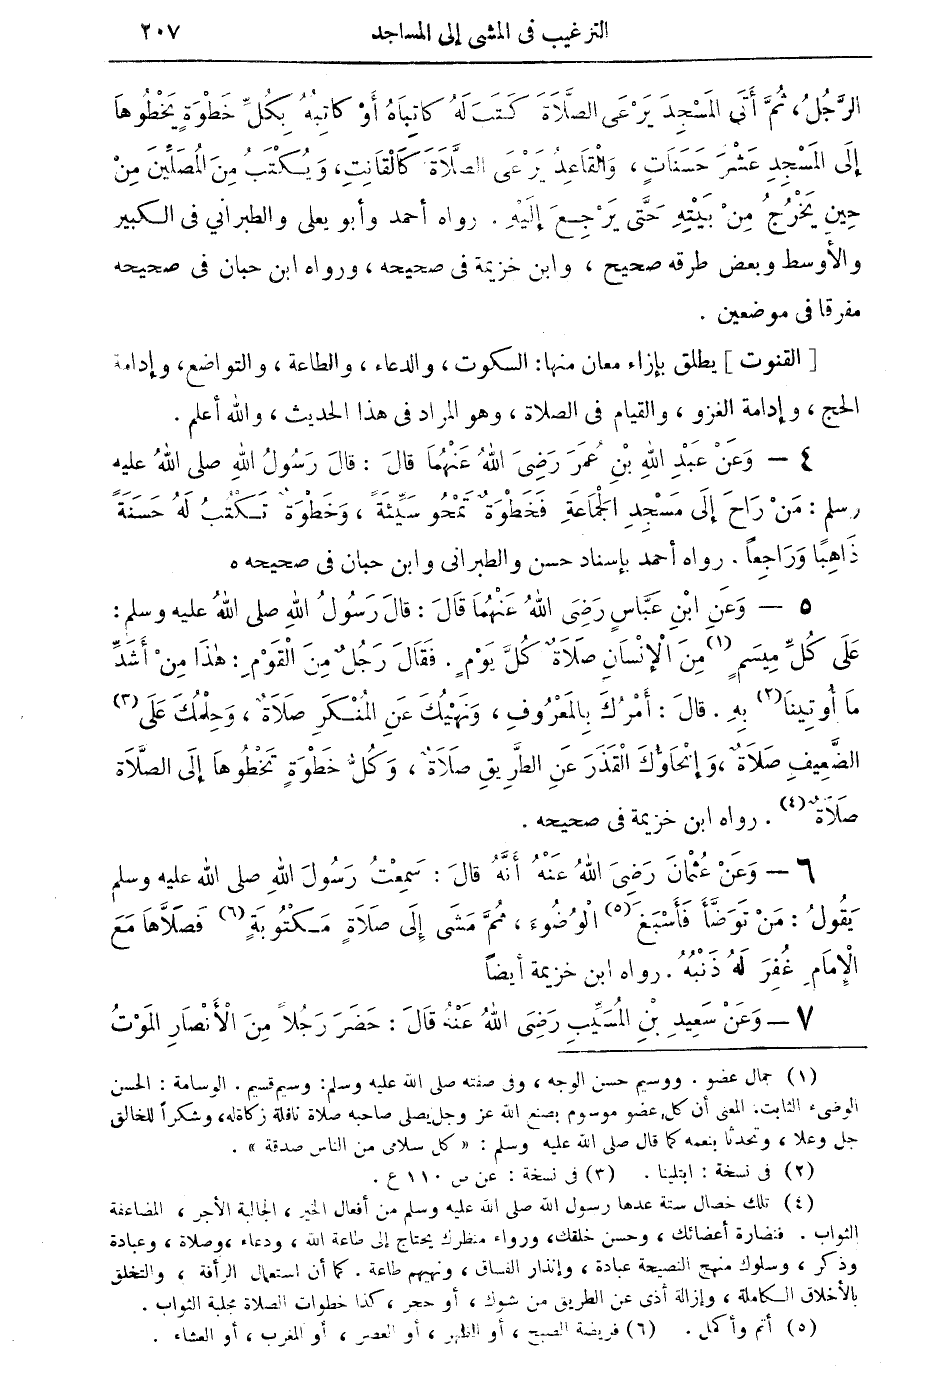 الترغيب فى المشى إلى المساجد ٢٠٧
الرَّجُلُ، ثُمَّ أَتَى المَسْجِدَ يَرْعَى الصَّلَاةَ كَتَبَ لَهُ كاتِبَاهُ أَوْ كاتِبُهُ بِكُلِّ خَطْوَةٍ يَخْطُوهَا
إِلَى المَسْجِدِ عَشْرَ حَسَنَاتٍ، وَالْقَاعِدُ يَرْعَى الصَّلَاةَ كَالْقَانِتِ، وَيُكْتَبُ مِنَ المُصَلِّينَ مِنْ
حِينِ يَخْرُجُ مِنْ بَيْتِهِ حَتَّى يَرْجِعَ إِلَيْهِ. رواه أحمد وأبو يعلى والطبراني فى الكبير
والأوسط وبعض طرقه صحيح، وابن خزيمة فى صحيحه، ورواه ابن حبان فى صحيحه
مفرقا فى موضعين.
[القنوت] يطلق بإزاء معان منها: السكوت، والدعاء، والطاعة، والتواضع، وإدامة
الحج، وإدامة الغزو، والقيام فى الصلاة، وهو المراد فى هذا الحديث، والله أعلم.
٤ — وَعَنْ عَبْدِ اللهِ بْنِ عُمَرَ رَضِىَ اللهُ عَنْهُمَا قالَ: قالَ رَسُولُ اللهِ صلى اللهُ عليه
وسلم: مَنْ رَاحَ إِلَى مَسْجِدِ الجَمَاعَةِ فَخَطْوَةٌ تَمْحُو سَيِّئَةً، وَخَطْوَةٌ تَكْتُبُ لَهُ حَسَنَةً
ذَاهِبًا وَرَاجِعاً. رواه أحمد بإسناد حسن والطبرانى وابن حبان فى صحيحه ٥
٥ — وَعَنِ ابْنِ عَبَّاسٍ رَضِىَ اللهُ عَنْهُمَا قَالَ: قالَ رَسُولُ اللهِ صلى اللهُ عليه وسلم:
عَلَى كُلِّ مِيسَمٍ (١) مِنَ الْإِنْسَانِ صَلَاةٌ كُلَّ يَوْمٍ. فَقَالَ رَجُلٌ مِنَ القَوْمِ: هٰذَا مِنْ أَشَدِّ
مَا أُوتِينَا (٢) بِهِ. قالَ: أَمْرُكَ بِالمَعْرُوفِ، وَنَهْيُكَ عَنِ المُنْكَرِ صَلَاةٌ، وَحِلْمُكَ عَلَى (٣)
الضَّعِيفِ صَلَاةٌ، وَإِنْحَاؤُكَ الْقَذَرَ عَنِ الطَّرِيقِ صَلَاةٌ، وَكُلُّ خَطْوَةٍ تَخْطُوهَا إِلَى الصَّلَاةِ
صَلَاةٌ (٤). رواه ابن خزيمة فى صحيحه.
٦ — وَعَنْ عُثْمَانَ رَضِىَ اللهُ عَنْهُ أَنَّهُ قالَ: سَمِعْتُ رَسُولَ اللهِ صلى اللهُ عليه وسلم
يَقُولُ: مَنْ تَوَضَّأَ فَأَسْبَغَ (٥) الْوُضُوءَ، ثُمَّ مَشَى إِلَى صَلَاةٍ مَكْتُوبَةٍ (٦) فَصَلَّاهَا مَعَ
الْإِمَامِ غُفِرَ لَهُ ذَنْبُهُ. رواه ابن خزيمة أيضاً
٧ — وَعَنْ سَعِيدِ بْنِ المُسَيِّبِ رَضِىَ اللهُ عَنْهُ قَالَ: حَضَرَ رَجُلاً مِنَ الْأَنْصَارِ المَوْتُ
(١) جمال عضو. ووسيم حسن الوجه، وفى صفته صلى الله عليه وسلم: وسيم قسيم. الوسامة: الحسن
الوضىء الثابت. المعنى أن كل عضو موسوم بصنع الله عز وجل يصلى صاحبه صلاة نافلة زكاة له، وشكراً للخالق
جل وعلا، وتحدثا بنعمه كما قال صلى الله عليه وسلم: « كل سلامى من الناس صدقة ».
(٢) فى نسخة: ابتلينا. (٣) فى نسخة: عن ص ١١٠ ع.
(٤) تلك خصال ستة عدها رسول الله صلى الله عليه وسلم من أفعال الخير، الجالبة الأجر، المضاعفة
الثواب. فنضارة أعضائك، وحسن خلقك، ورواء منظرك يحتاج إلى طاعة الله، ودعاء، وصلاة، وعبادة
وذكر، وسلوك منهج النصيحة عبادة، وإنذار الفساق، ونهيهم طاعة. كما أن استعمال الرأفة، والتخلق
بالأخلاق الكاملة، وإزالة أذى عن الطريق من شوك، أو حجر، كذا خطوات الصلاة مجلبة الثواب.
(٥) أتم وأكمل. (٦) فريضة الصبح، أو الظهر، أو العصر، أو المغرب، أو العشاء.